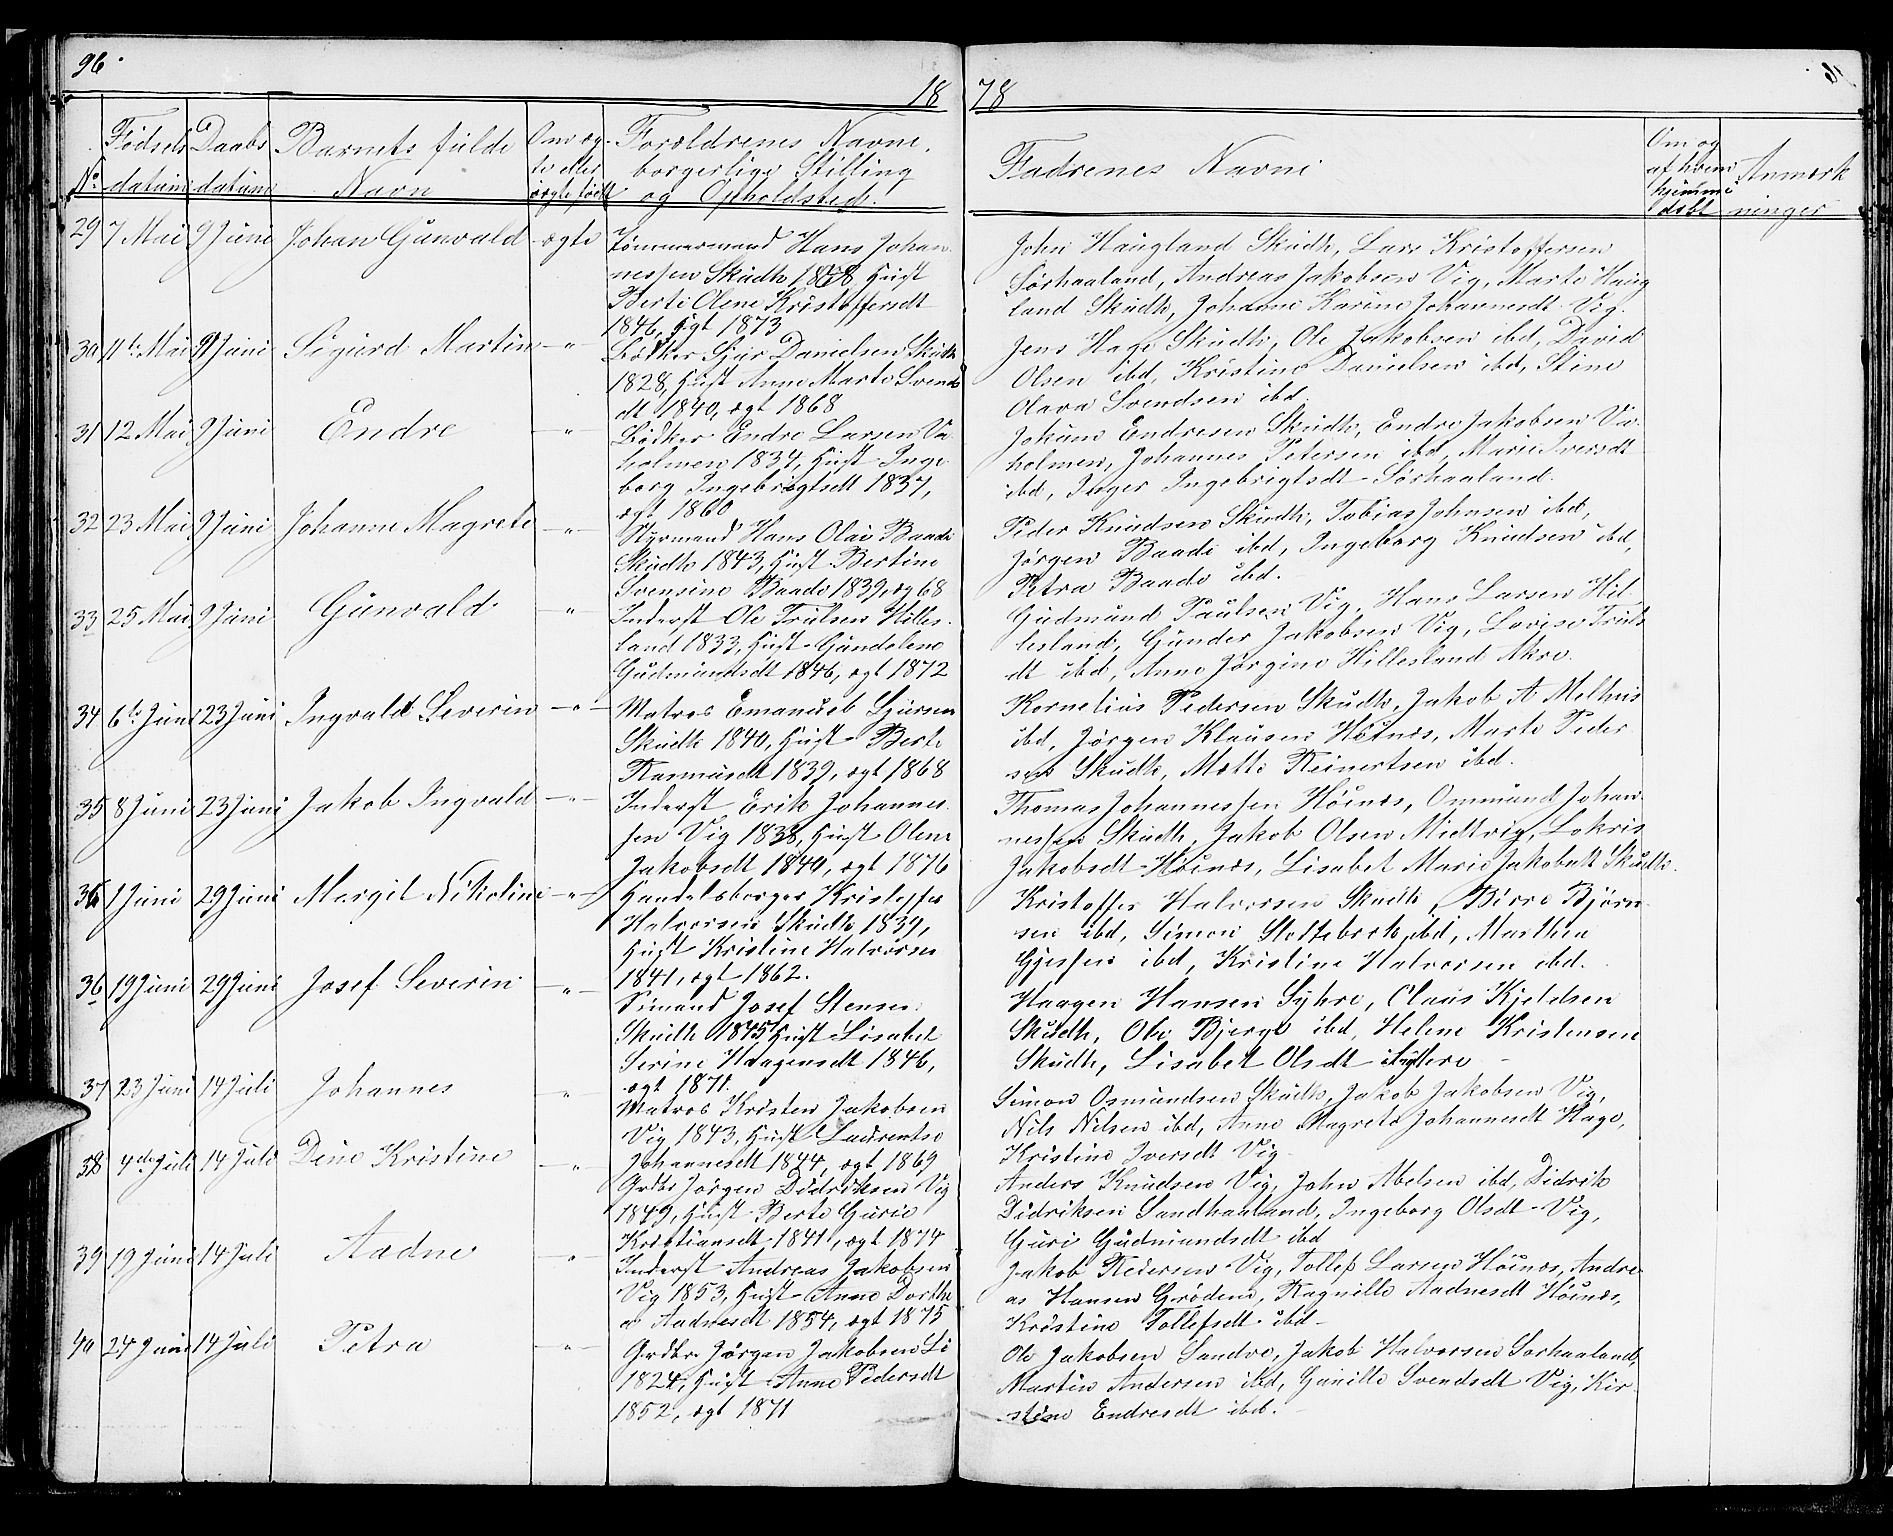 96.
1878
No.
Fødsels datum
Daabs datum
Barnets fulde Navn
Om ægte eller uægte født
Forældrenes Navne, borgerlige Stilling og Opholdsted.
Fadrenes Navne
Om og af hvem hjemmedøbt
Anmærkninger
29 7 Mai 9 Juni Johan Gunvald ægte
Tømmermand Hans Johan-
nessen Skudh 1848, Hust
Berte Olene Kristoffersdt
1846, ægt 1873
John Haugland Skudh, Lars Kristoffersen
Sørhaaland, Andreas Jakobsen Vig, Marte Haug
land Skudh, Johanne Karine Johannesdt Vig.
30 11te Mai 9 Juni Sigurd Martin -"-
Bødker Sjur Danielsen Skudh
1828, Hust Anne Marte Svends
dt 1840, ægt 1868
Jens Hage Skudh, Ole Jakobsen ibd, David
Olsen ibd, Kristine Danielsen ibd, Stine
Olava Svendsen ibd.
31 12 Mai 9 Juni Endre -"-
Bødker Endre Larsen Va
holmen 1834, Hust Inge
borg Ingebrigtsdt 1837,
ægt 1860
Jokum Endresen Skudh, Endre Jakobsen Va-
holmen, Johannes Petersen ibd, Marie Iversdt
ibd, Inger Ingebrigtsdt Sørhaaland.
32 23 Mai 9 Juni Johanne Magrete -"-
Styrmand Hans Olai Baade
Skudh 1843, Hust Bertine
Svensine Baade 1839, æg 68
Peder Knudsen Skudh, Tobias Johnsen ibd,
Jørgen Baade ibd, Ingeborg Knudsen ibd,
Petra Baade ibd.
33 25 Mai 9 Juni Gunvald -"-
Inderst Ole Trulsen Hilles-
land 1833, Hust Gundolene
Gudmundsdt 1846, ægt 1872
Gudmund Paulsen Vig, Hans Larsen Hil
lesland, Gunder Jakobsen Vig, Lovise Truls
dt ibd, Anne Jørgine Hillesland Akre.
34 6te Juni 23 Juni Ingvald Severin -"-
Matros Emanuel Sjursen
Skudh 1840, Hust Berte
Rasmusdt 1839, ægt 1868
Kornelius Pedersen Skudh, Jakob A Melhus
ibd, Jørgen Klausen Høinæs, Marte Peder
sen Skudh, Mette Reinertsen ibd.
35 8 Juni 23 Juni Jakob Ingvald -"-
Inderst Erik Johannes-
sen Vig 1838, Hust Olene
Jakobsdt 1840, ægt 1876
Thomas Johannessen Høinæs, Ommund Johan-
nessen Skudh, Jakob Olsen Midtvig, Lokris
Jakobsdt Høinæs, Lisabet Marie Jakobsdt Skudh.
36 1 Juni 29 Juni Margit Nikoline -"-
Handelsborger Kristoffer
Halvorsen Skudh 1839,
Hust Kristine Halvorsen
1841, ægt 1862.
Kristoffer Halvorsen Skudh, Birre Bjørn
sen ibd, Simon Slottebrok ibd, Marthea
Gjessen ibd, Kristine Halvorsen ibd.
36 19 Juni 29 Juni Josef Severin -"-
Sømand Josef Stensen
Skudh 1845 Hust Lisabet
Serine Haagensdt 1846,
ægt 1871.
Haagen Hansen Syhre, Claus Kjeldsen
Skudh, Ole Bjerge ibd, Helene Kristensen
Skudh, Lisabet Olsdt Syhre
37 23 Juni 14 Juli Johannes "
Matros Kristen Jakobsen
Vig 1843, Hust Laurentse
Johannesdt 1844, ægt 1869
Simon Osmundsen Skudh, Jakob Jakobsen Vig,
Nils Nilsen ibd, Anne Magrete Johannesdt Hage,
Kristine Iversdt Vig
38 4de Juli 14 Juli Dine Kristine -"-
Grdbr Jørgen Didriksen Vig
1849, Hust Berte Gurie
Kristiansdt 1841, ægt 1874
Anders Knudsen Vig, John Abelsen ibd, Didrik
Didriksen Sandhaaland, Ingeborg Olsdt Vig,
Guri Gudmundsdt ibd
39 19 Juni 14 Juli Aadne -"-
Inderst Andreas Jakobsen
Vig 1853, Hust Anne Dorthe
a Aadnesdt 1854, ægt 1875
Jakob Pedersen Vig, Tollef Larsen Høinæs, Andre
as Hansen Grødem, Ragnille Aadnesdt Høinæs,
Kristine Tollefsdt ibd
40 24 Juni 14 Juli Petra -"-
Grdbr Jørgen Jakobsen Li
1824, Hust Anne Pedersdt
1852, ægt 1871
Ole Jakobsen Sandve, Jakob Halvorsen Sørhaaland,
Martin Andersen ibd, Gunille Svendsdt Vig, Kir
stine Endresdt ibd.